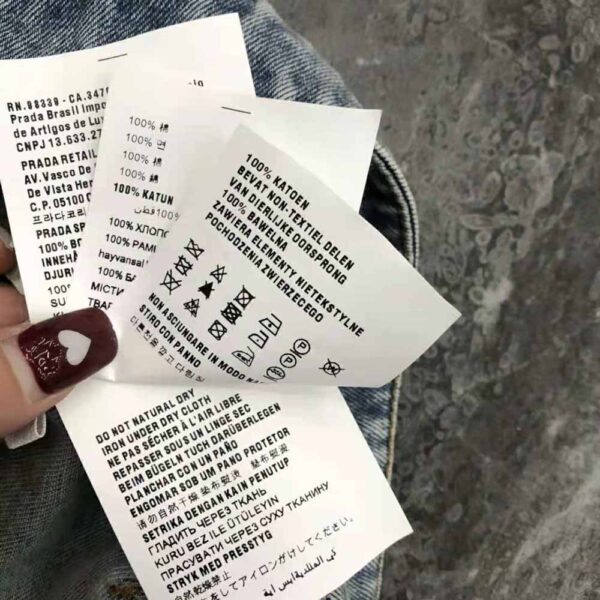 RN.98339 - CA.347
Prada Brasil Impo
de Artigos de Lu
CNPJ 13.633.27
PRADA RETAIL
AV. Vasco De
De Vista Her
C.P. 05100
프라다코리
PRADA SP
100% BO
INNEHÅ
DJUR
100%
SU
100% 棉
100% 면
100% 棉
100% 棉
100% KATUN
100% قطن
100% ХЛОПО
100% PAMU
hayvansal
100% БА
МІСТИ
TRAD
100% KATOEN
BEVAT NON-TEXTIEL DELEN
VAN DIERLIJKE OORSPRONG
100% BAWEŁNA
ZAWIERA ELEMENTY NIETEKSTYLNE
POCHODZENIA ZWIERZĘCEGO
P
NON ASCIUGARE IN MODO NA
STIRO CON PANNO
DO NOT NATURAL DRY
IRON UNDER DRY CLOTH
NE PAS SÉCHER À L'AIR LIBRE
REPASSER SOUS UN LINGE SEC
BEIM BÜGELN TUCH DARÜBERLEGEN
PLANCHAR CON UN PAÑO
ENGOMAR SOB UM PANO PROTETOR
请勿自然干燥 垫布熨烫
SETRIKA DENGAN KAIN PENUTUP
ГЛАДИТЬ ЧЕРЕЗ ТКАНЬ
KURU BEZ ILE ÜTÜLEYIN
ПРАСУВАТИ ЧЕРЕЗ СУХУ ТКАНИНУ
STRYK MED PRESSTYG
自然乾燥禁止
をしてアイロンがけしてください。